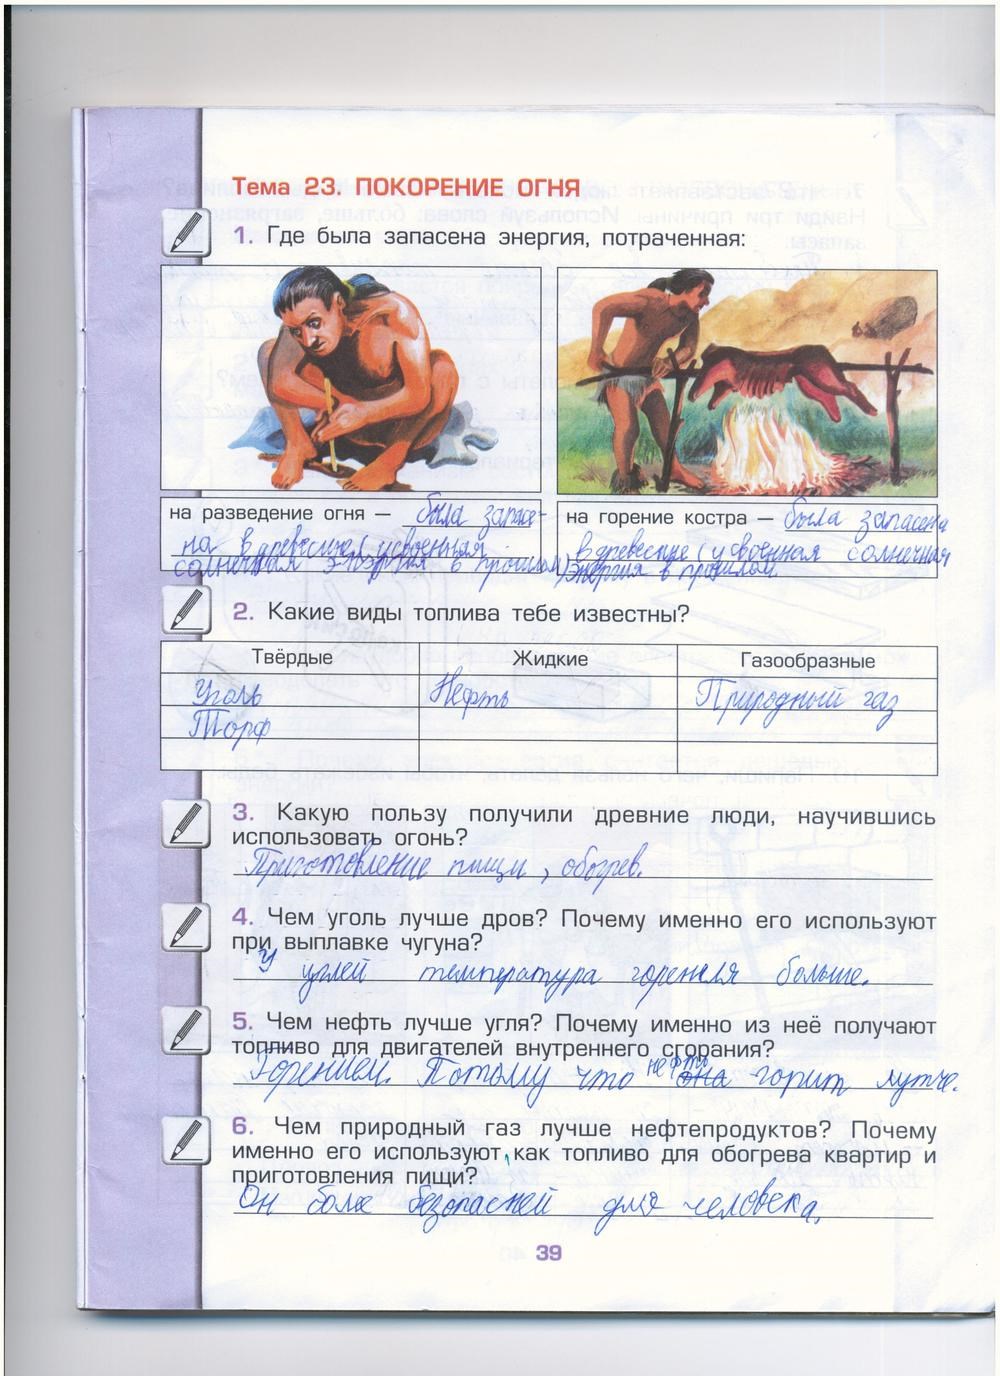 Тема 23. ПОКОРЕНИЕ ОГНЯ
1. Где была запасена энергия, потраченная:
на разведение огня — была запасе-
на в древесине (усвоенная
солнечная энэргия в прошлом)
на горение костра — была запасена
в древесине (усвоенная солнечная
энергия в прошлом.
2. Какие виды топлива тебе известны?
Твёрдые Жидкие Газообразные
Уголь Нефть Природный газ
Торф
3. Какую пользу получили древние люди, научившись
использовать огонь?
Приготовление пищи, обогрев.
4. Чем уголь лучше дров? Почему именно его используют
при выплавке чугуна?
У углей температура горения больше.
5. Чем нефть лучше угля? Почему именно из неё получают
топливо для двигателей внутреннего сгорания?
Горением. Потому что нефть она горит лутче.
6. Чем природный газ лучше нефтепродуктов? Почему
именно его используют как топливо для обогрева квартир и
приготовления пищи?
Он более безопасней для человека.
39